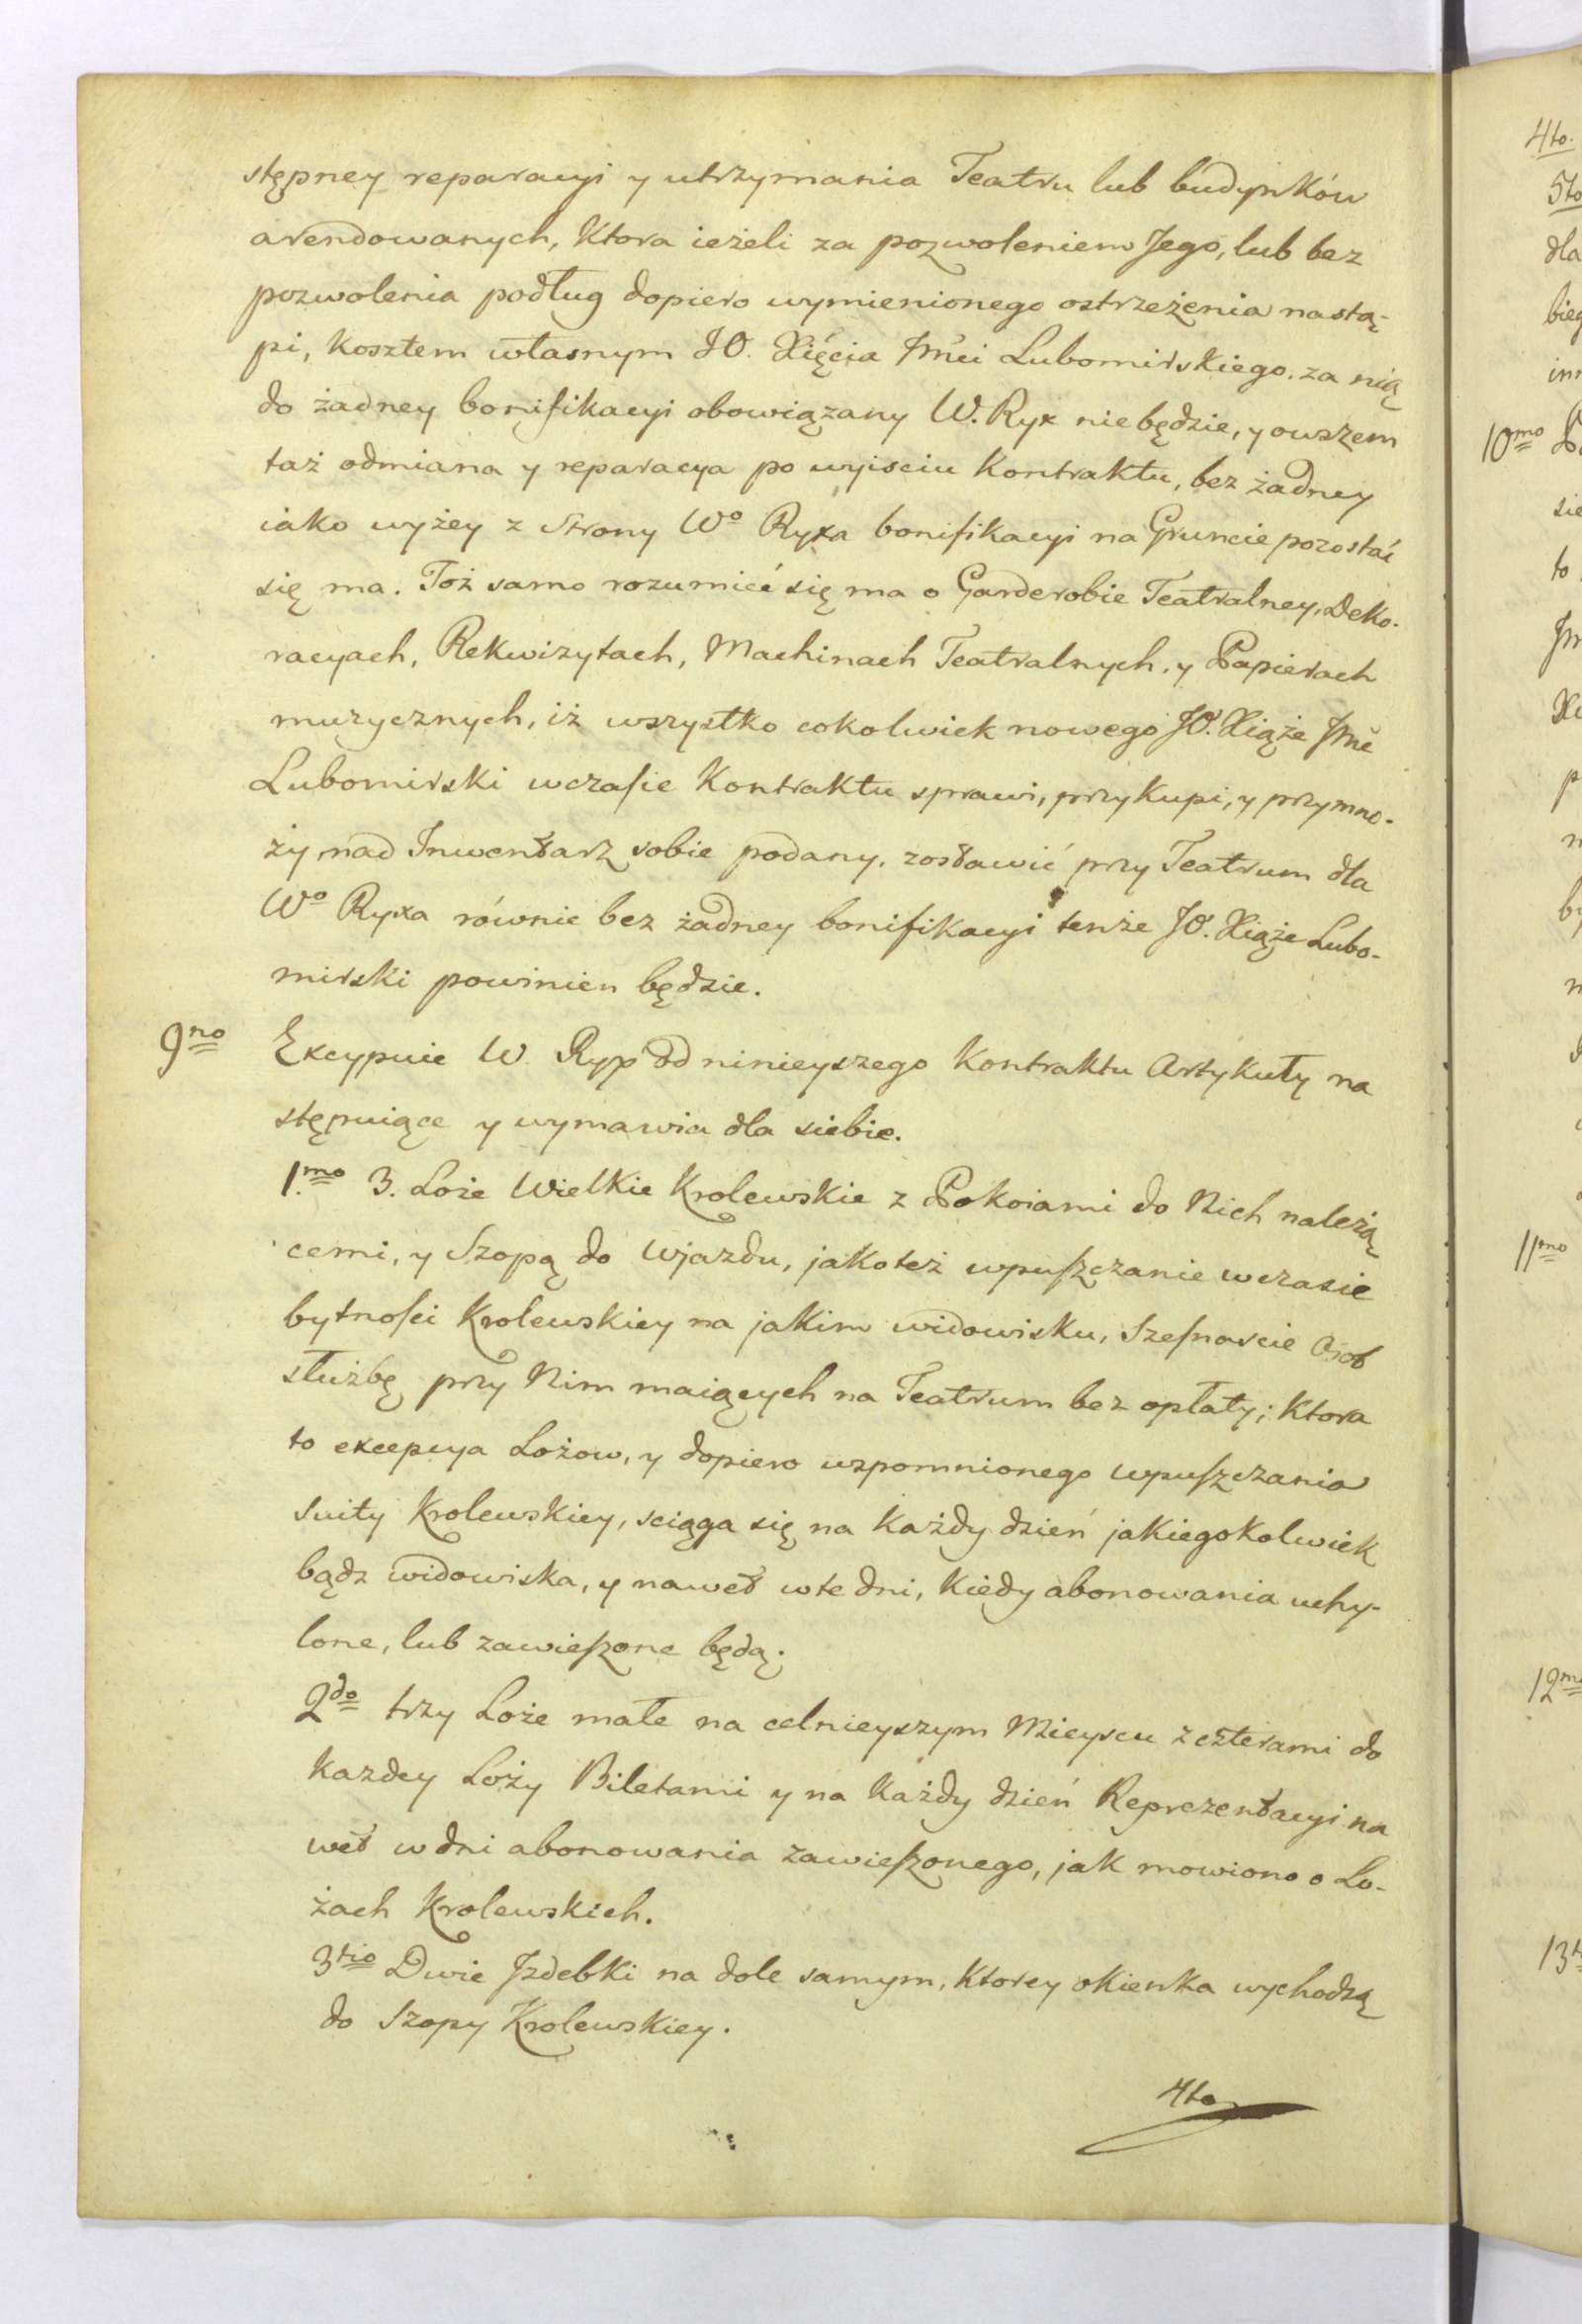 stępney reparacyi y utrzymania Teatru lub budynków
arendowanych, Ktora ieżeli za pozwoleniem Jego, lub bez
pozwolenia podług dopiero wymienionego ostrzeżenia nastą-
pi, Kosztem własnym JO. Xięcia Jmći Lubomirskiego. za nią
do żadney bonifikacyi obowiązany W. Ryx nie będzie, y owszem
taż odmiana y reparacya po wyisciu Kontraktu, bez żadney
iako wyżey z Strony Wo Ryxa bonifikacyi na Gruncie pozostać
się ma. Toż samo rozumieć się ma o Garderobie Teatralney, Deko-
racyach, Rekwizytach, Machinach Teatralnych, y Papierach
muzycznych, iż wszystko cokolwiek nowego JO. Xiąże Jmć
Lubomirski wczasie Kontraktu sprawi, przykupi, y przymno-
ży nad Inwentarz sobie podany, zostawić przy Teatrum dla
Wo Ryxa równie bez żadney bonifikacyi tenże JO. Xiąże Lubo-
mirski powinien będzie.
9no Excypuie W. Ryx od ninieyszego Kontraktu Artykuły na
stępuiące y wymawia dla siebie.
1.mo 3. Loże Wielkie Krolewskie z Pokoiami do Nich należą
cemi, y Szopą do Wjazdu, jakoteż wpuszczanie wczasie
bytnosci Krolewskiey na jakim widowisku, Szesnascie Osob
służbę przy Nim maiących na Teatrum bez opłaty; Ktora
to excepcya Lożow, y dopiero wspomnionego wpuszczania
suity Krolewskiey, sciąga się na Każdy dzień jakiegokolwiek
bądz widowiska, y nawet w te dni, Kiedy abonowania uchy-
lone, lub zawieszone będą.
2do trzy Loże małe na celnieyszym Mieyscu z czterami do
Kazdey Loży Biletami y na Każdy dzień Reprezentacyi na
wet w dni abonowania zawieszonego, jak mowiono o Lo-
żach Krolewskich.
3tio Dwie Jzdebki na dole samym, Ktorey okienka wychodzą
do Szopy Krolewskiey.
4to
4to.
5to
dla
bieg
10mo
sie
to
11mo
12mo